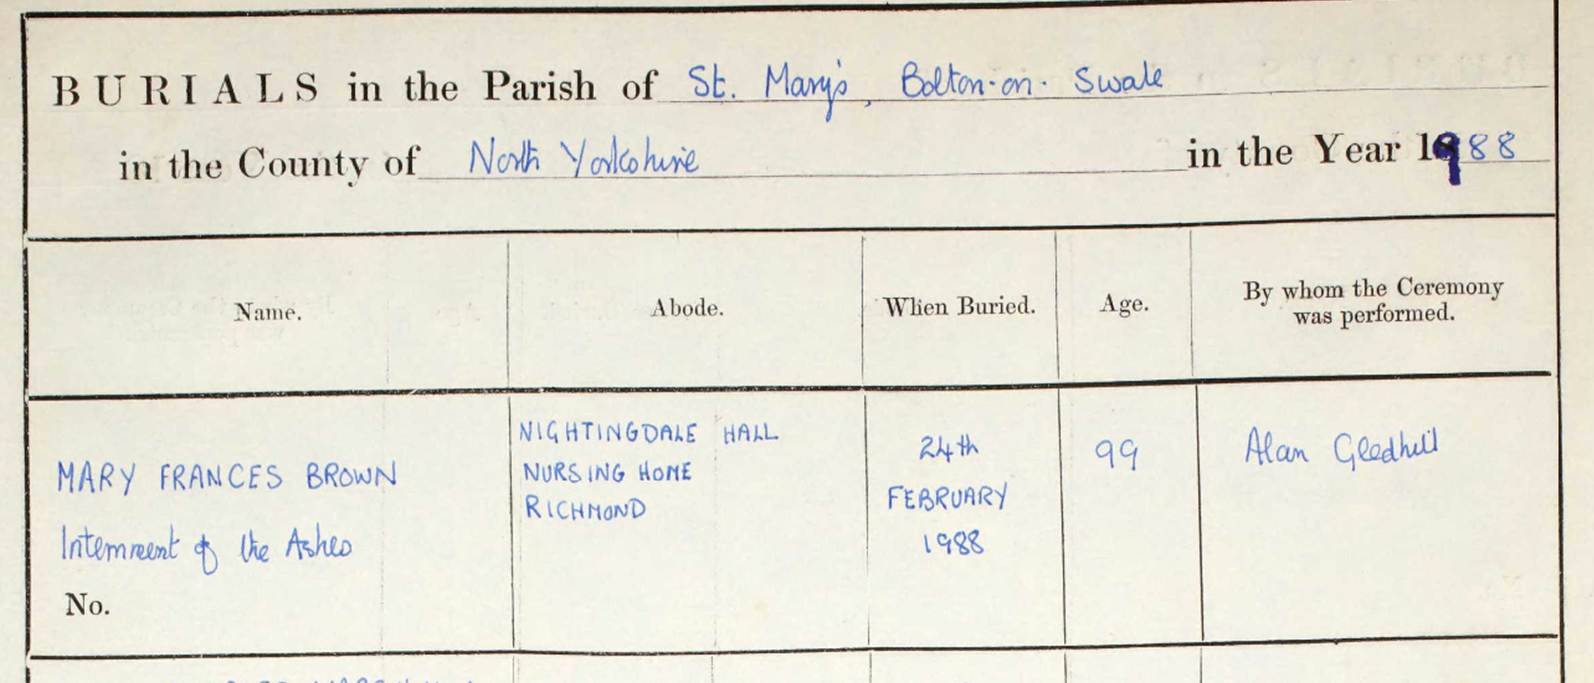 BURIALS in the Parish of St. Mary's, Bolton-on-Swale
in the County of North Yorkshire in the Year 1988
Name. Abode. When Buried. Age. By whom the Ceremony
was performed.
MARY FRANCES BROWN
Interment of the Ashes
No.
NIGHTINGDALE HALL
NURSING HOME
RICHMOND
24th
FEBRUARY
1988
99
Alan Gledhill